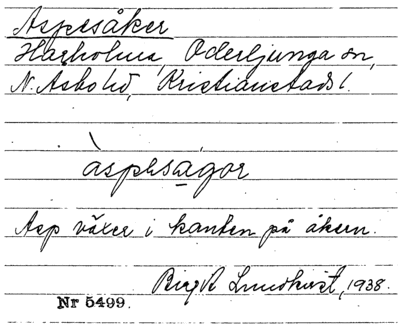 Aspesåker
Harholma, Oderljunga sn,
N. Åsbo hd, Kristianstads l.
àspesa̲gor
Asp växer i kanten på åkern.
Birgit Lundkvist, 1938.
Nr 5499.